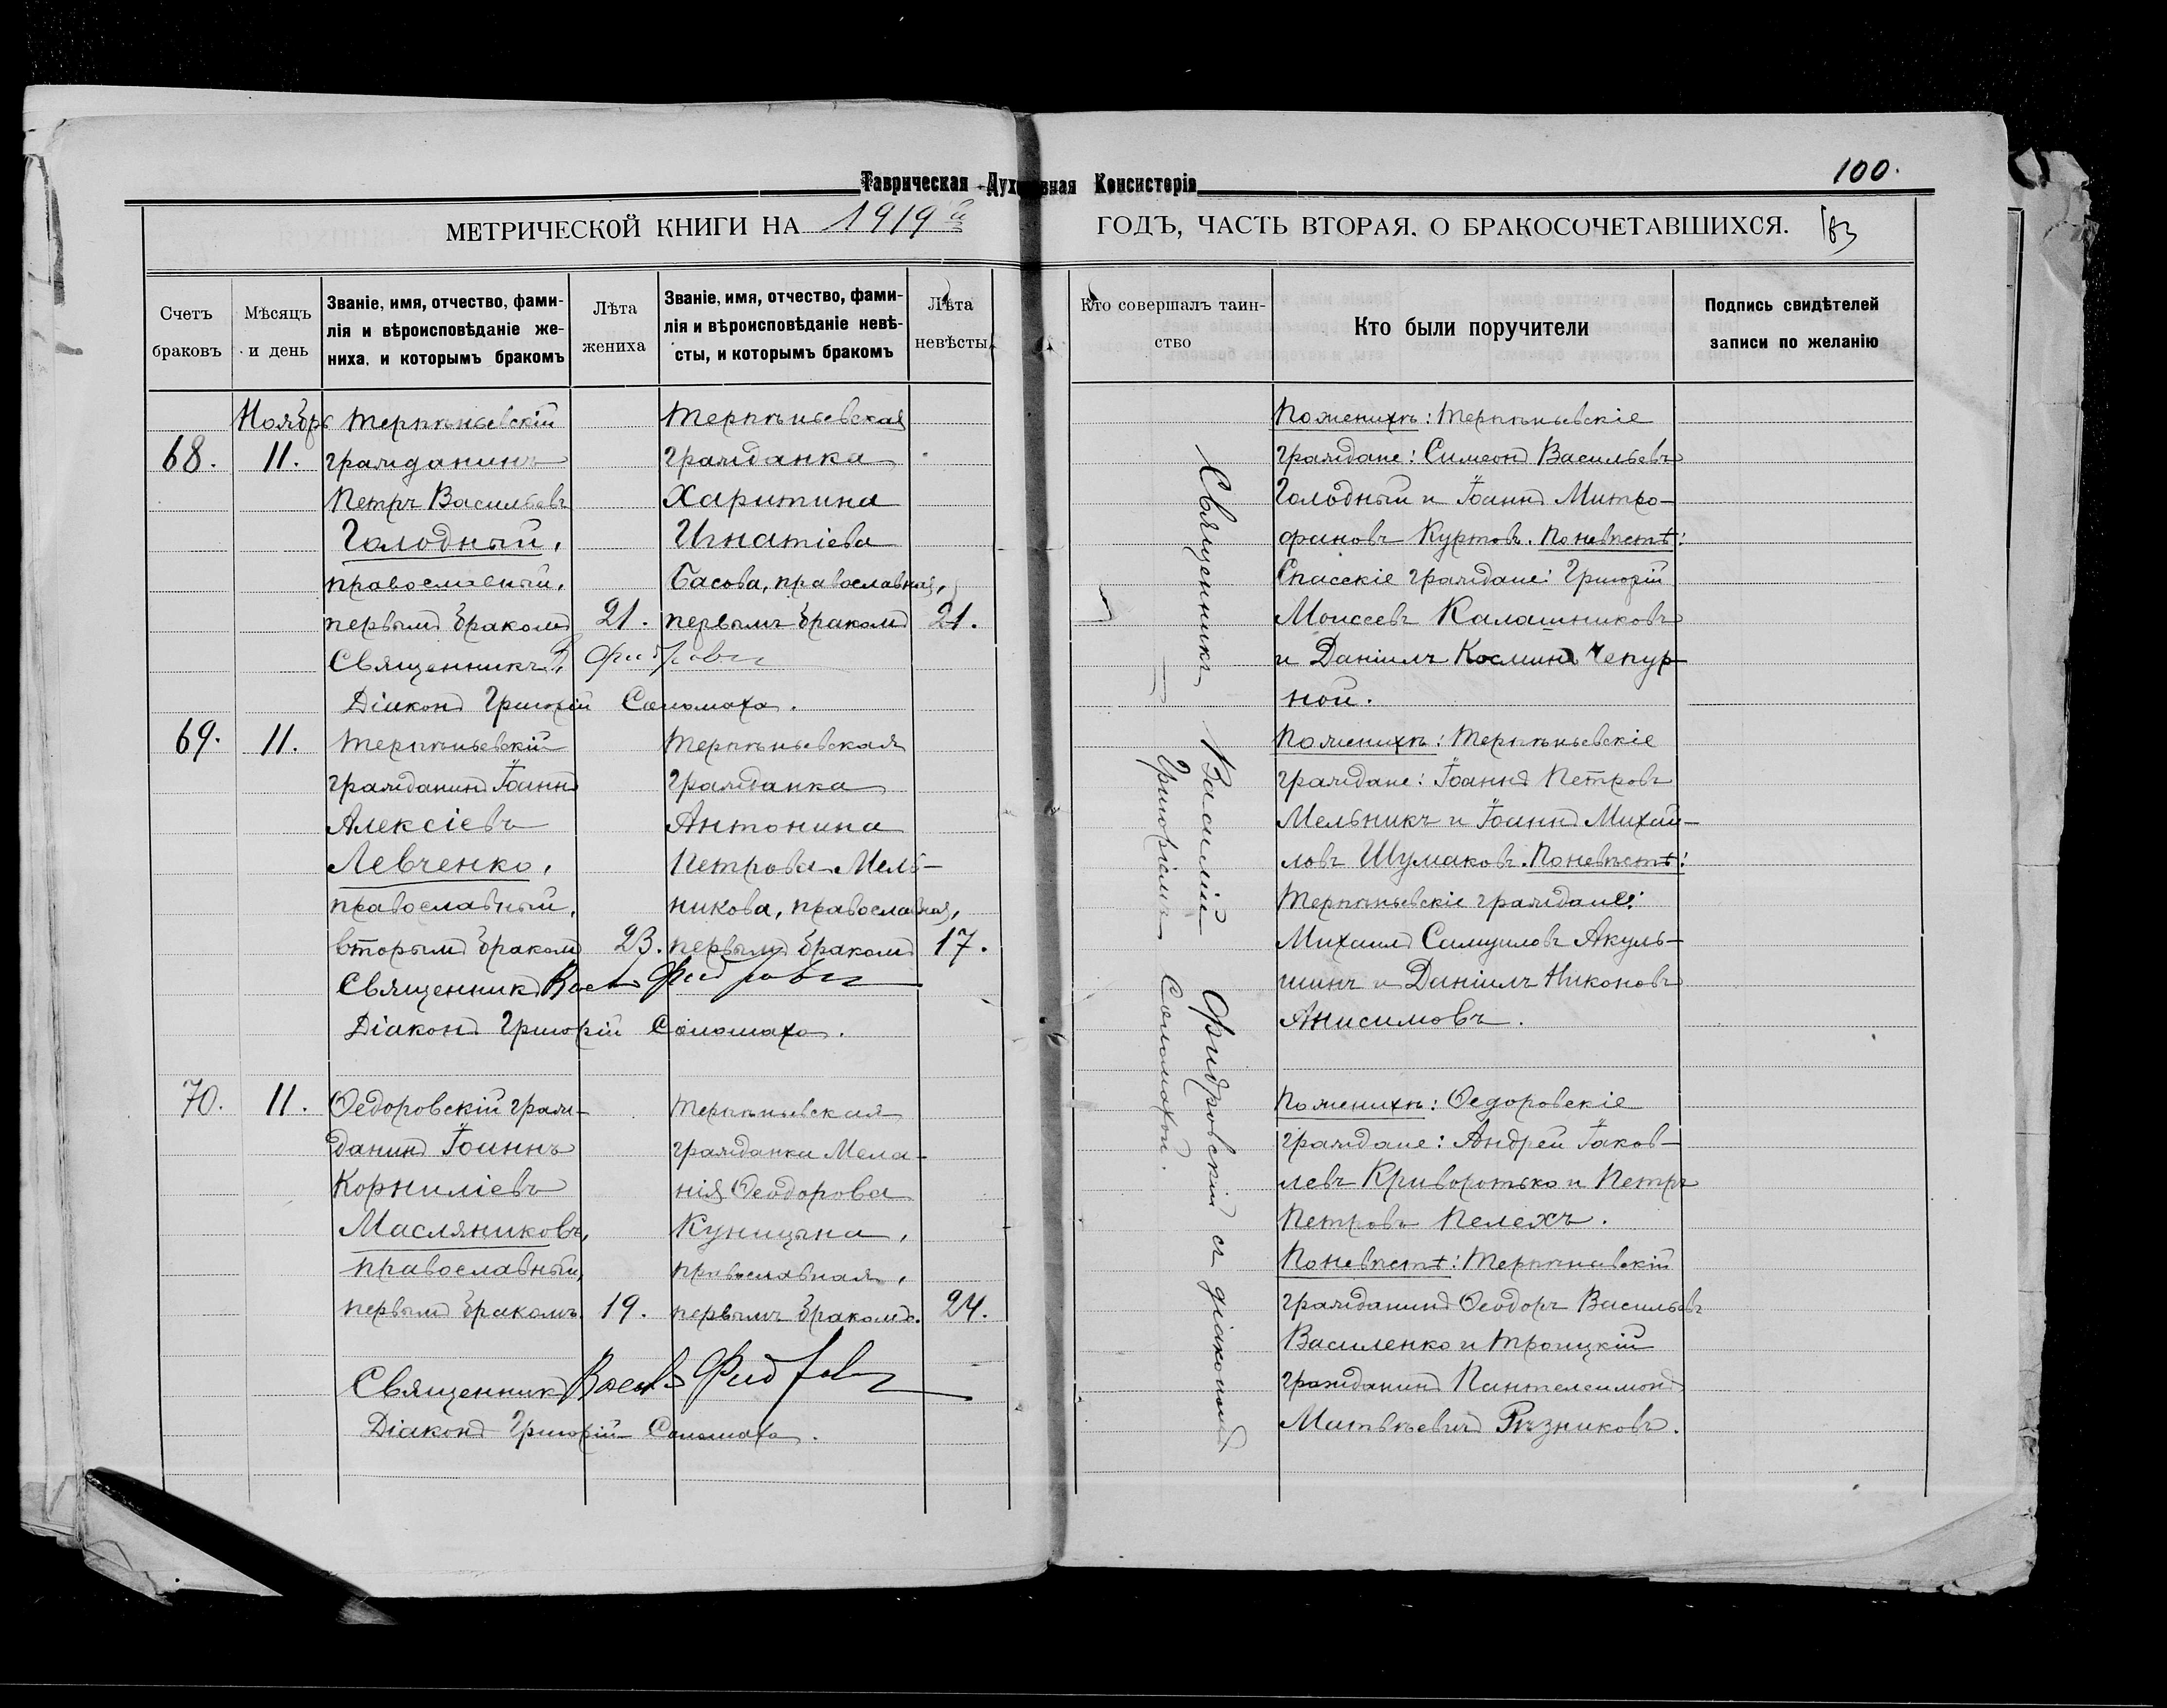 Таврическая Духовная Консисторія
100.
МЕТРИЧЕСКОЙ КНИГИ НА 1919й ГОДЪ, ЧАСТЬ ВТОРАЯ, О БРАКОСОЧЕТАВШИХСЯ.
Счетъ браковъ
Мѣсяцъ и день
Званіе, имя, отчество, фами-
лія и вѣроисповѣданіе же-
ниха, и которымъ бракомъ
Лѣта жениха
Званіе, имя, отчество, фами-
лія и вѣроисповѣданіе невѣ-
сты, и которымъ бракомъ
Лѣта невѣсты
Кто совершалъ таин-
ство
Кто были поручители
Подпись свидѣтелей
записи по желанію
Ноябрь
68.
11.
Терпѣньевскій
гражданинъ
Петръ Васильевъ
Голодный,
православный,
первымъ бракомъ
21.
Терпѣньевская
гражданка
Харитина
Игнатіева
Басова, православная,
первымъ бракомъ
21.
Священникъ
Діаконъ Григорій Соломаха.
По женихѣ: Терпѣньевскіе
граждане: Симеонъ Васильевъ
Голодный и Іоаннъ Митро-
фановъ Куртовъ. По невѣстѣ:
Спасскіе граждане: Григорій
Моисеевъ Калашниковъ
и Даніилъ Косминъ Чепур-
ной.
69.
11.
Терпѣньевскій
гражданинъ Іоаннъ
Алексіевъ
Левченко,
православный,
вторымъ бракомъ
23.
Терпѣньевская
гражданка
Антонина
Петрова Мель-
никова, православная,
первымъ бракомъ
17.
Священникъ
Діаконъ Григорій Соломаха.
По женихѣ: Терпѣньевскіе
граждане: Іоаннъ Петровъ
Мельникъ и Іоаннъ Михай-
ловъ Шумаковъ. По невѣстѣ:
Терпѣньевскіе граждане:
Михаилъ Самуиловъ Акуль-
шинъ и Даніилъ Никоновъ
Анисимовъ.
70.
11.
Ѳедоровскій граж-
данинъ Іоаннъ
Корниліевъ
Масляниковъ,
православный,
первымъ бракомъ.
19.
Терпѣньевская
гражданка Мела-
нія Ѳеодорова
Куницына,
православная,
первымъ бракомъ.
24.
Священникъ
Діаконъ Григорій Соломаха.
По женихѣ: Ѳедоровскіе
граждане: Андрей Іаков-
левъ Криворотько и Петръ
Петровъ Пелехъ.
По невѣстѣ: Терпѣньевскій
гражданинъ Ѳеодоръ Васильевъ
Василенко и Троицкій
гражданинъ Пантелеимонъ
Матвѣевичъ Рѣзниковъ.
Священникъ Василій Фидровскій съ діакономъ
Григоріемъ Соломахой.